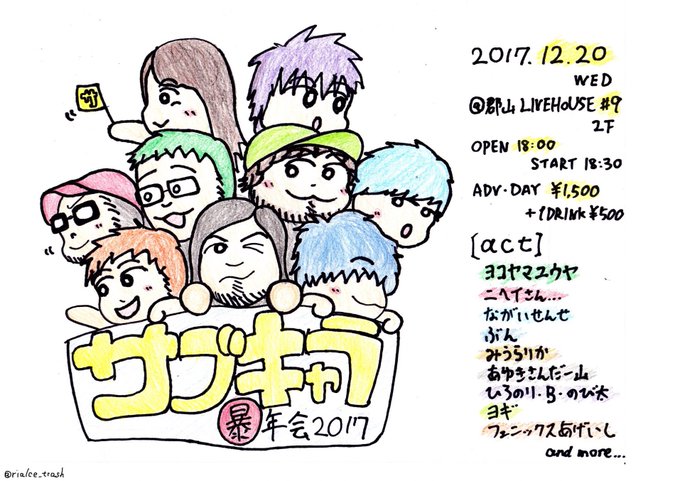 サ
サブキャラ
暴年会2017
2017.12.20
WED
@郡山 LIVEHOUSE #9
2F
OPEN 18:00
START 18:30
ADV・DAY ¥1,500
+1DRINK ¥500
[act]
ヨコヤマユウヤ
ニヘイさん...
ながいせんせ
ぶん
みうらりか
あゆきさんだー山
ひろのり・B・のび太
ヨギ
フェニックスあげいし
and more...
@rialce_trash